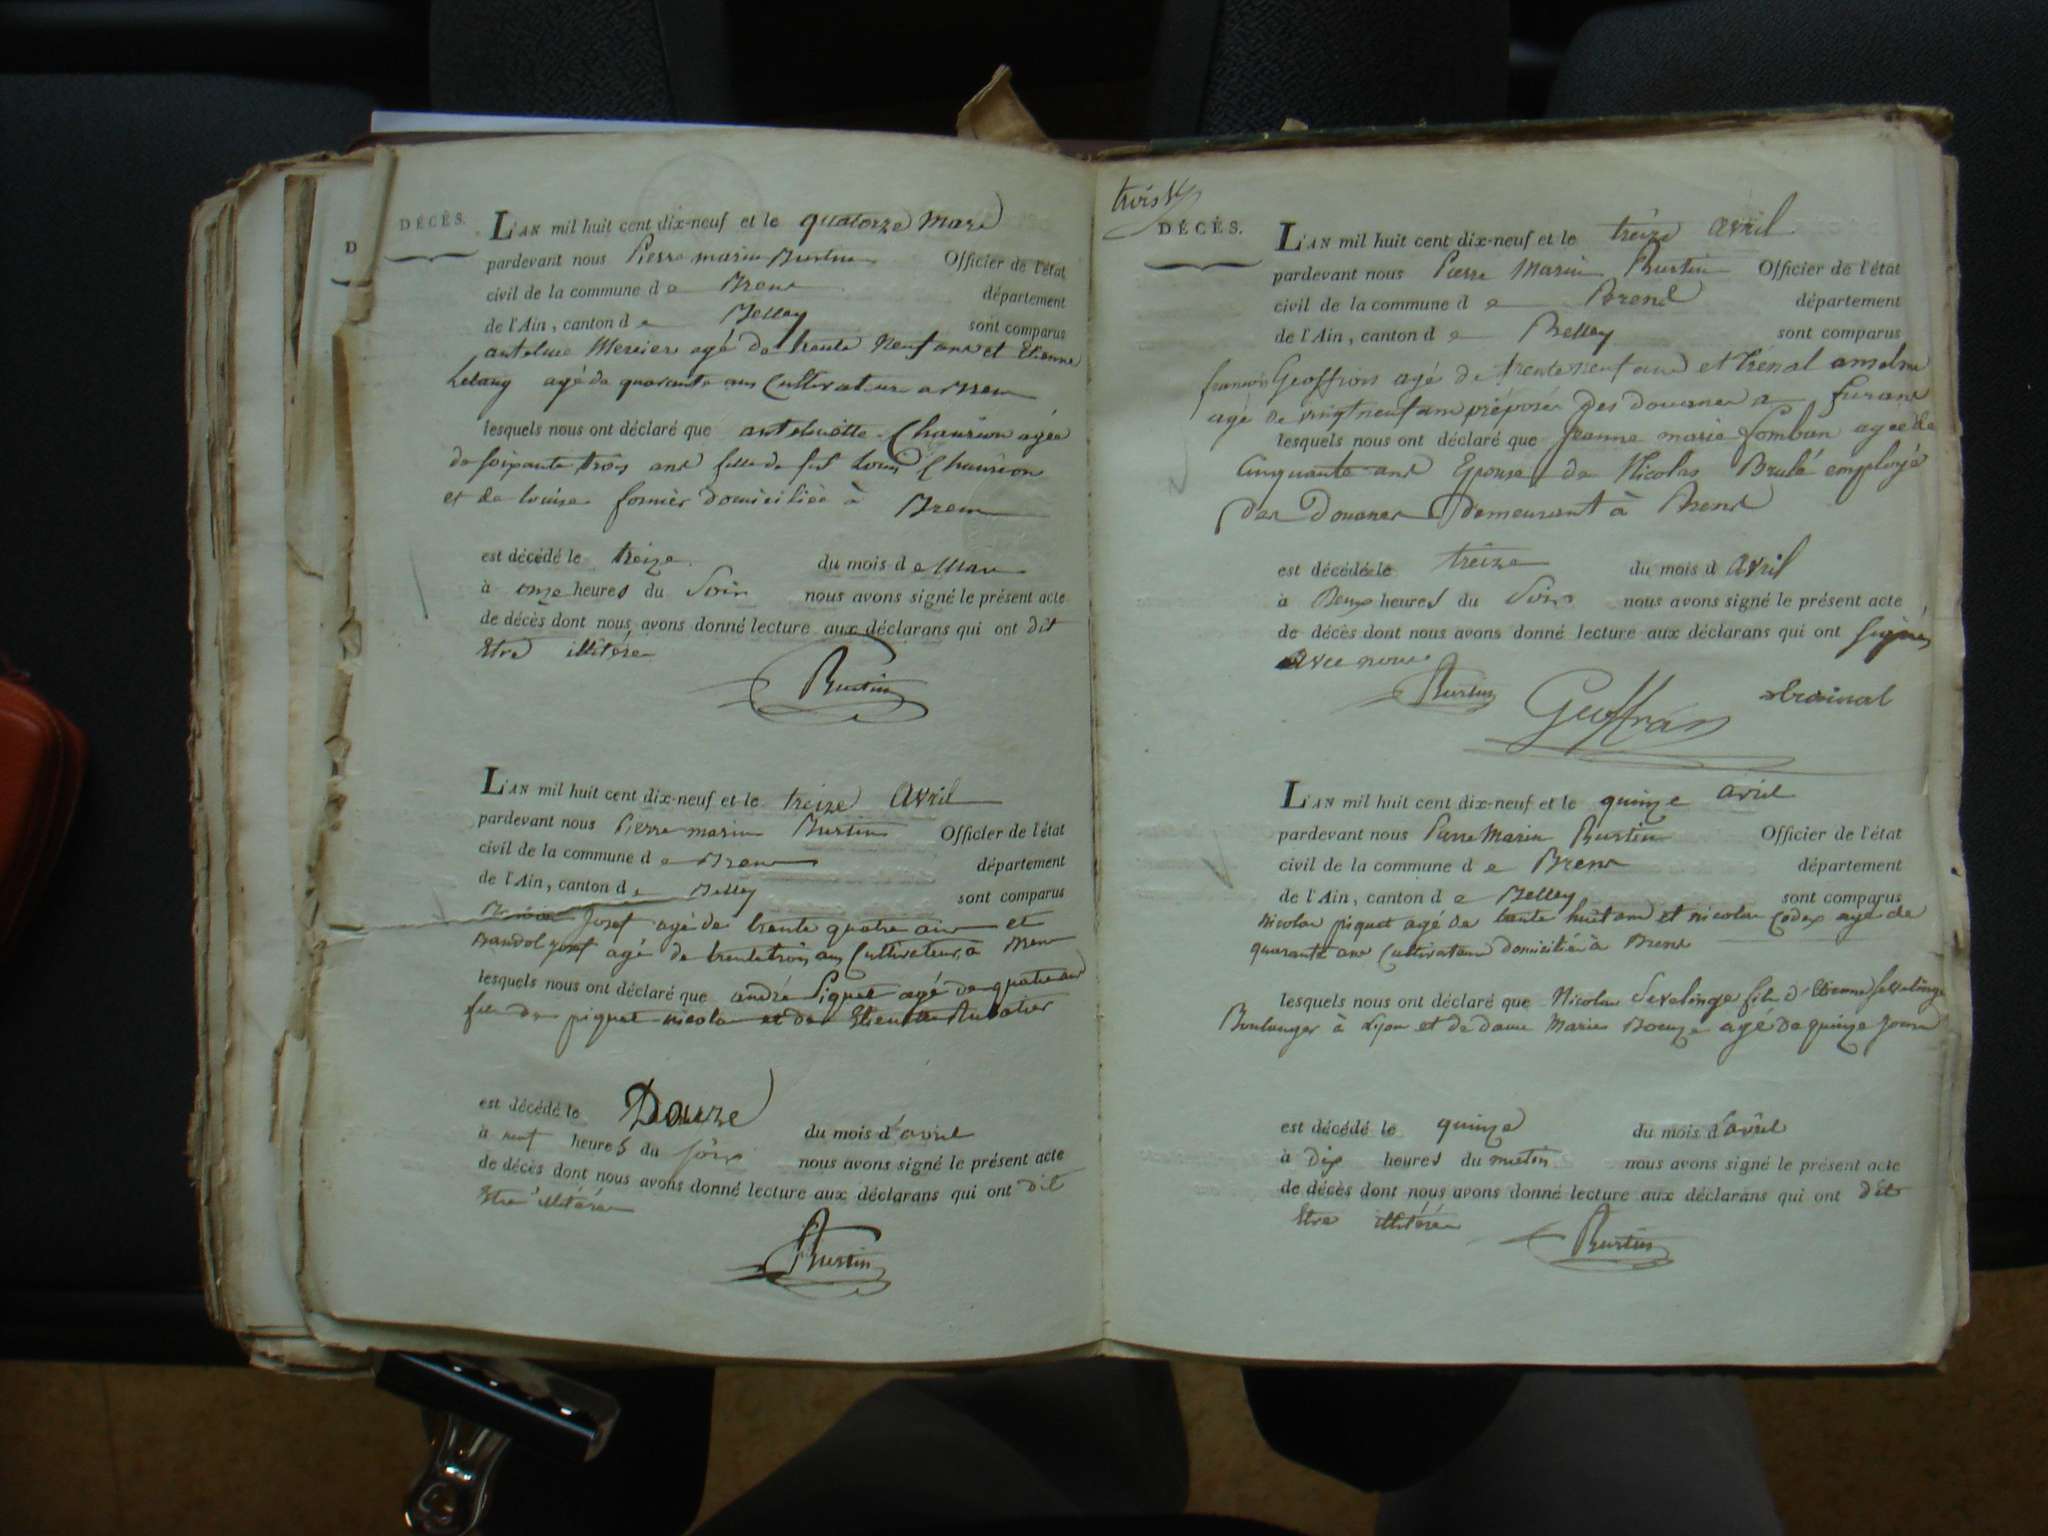 D
DÉCÈS.
L'AN mil huit cent dix-neuf et le quatorze Mars
pardevant nous Pierre marin Burtin Officier de l'état
civil de la commune de Brens département
de l'Ain, canton de Belley sont comparus
antelme Mercier agé de trente Neuf ans et Etienne
agé de quarante ans Cultivateurs a Brens
lesquels nous ont déclaré que antelmette Chaurion agée
de soixante trois ans fille de fut Louis Chaurion
et de louise fornier domiciliée à Brens
est décédé le treize du mois de Mars
à onze heures du Soir nous avons signé le présent acte
de décès dont nous avons donné lecture aux déclarans qui ont dit
Etre illitéré
Burtin
L'AN mil huit cent dix-neuf et le treize Avril
pardevant nous Pierre marin Burtin Officier de l'état
civil de la commune de Brens département
de l'Ain, canton de Belley sont comparus
Josef agé de trente quatre ans et
Bandol josef agé de trente trois ans Cultivateurs a Brens
lesquels nous ont déclaré que andré Piquet agé de quatre ans
fils de piquet nicolas et de
est décédé le Douze du mois d'avril
à neuf heures du soir nous avons signé le présent acte
de décès dont nous avons donné lecture aux déclarans qui ont dit
Etre illitéré
Burtin
trois
DÉCÈS.
L'AN mil huit cent dix-neuf et le treize avril
pardevant nous Pierre Marin Burtin Officier de l'état
civil de la commune de Brens département
de l'Ain, canton de Belley sont comparus
francois Geoffrois agé de trente neuf ans et trenal anselme
agé de vingt neuf ans préposés des douanes a furans
lesquels nous ont déclaré que Jeanne marie Lomban agée de
Cinquante ans Epouse de Nicolas Brulé employé
des Douanes demeurant à Brens
est décédé le treize du mois d avril
à Deux heures du Soir nous avons signé le présent acte
de décès dont nous avons donné lecture aux déclarans qui ont signés
avec nous
Burtin Geoffrois
L'AN mil huit cent dix-neuf et le quinze avril
pardevant nous Pierre Marin Burtin Officier de l'état
civil de la commune de Brens département
de l'Ain, canton de Belley sont comparus
nicolas piquet agé de trente huit ans et nicolas Codex agé de
quarante ans Cultivateurs domiciliés à Brens
lesquels nous ont déclaré que Nicolas Sevelinge fils d'Etienne Sevelinge
Boulanger à Lyon et de dame Marie agé de quinze jours
est décédé le quinze du mois d'avril
à dix heures du matin nous avons signé le présent acte
de décès dont nous avons donné lecture aux déclarans qui ont dit
Etre illitéré
Burtin